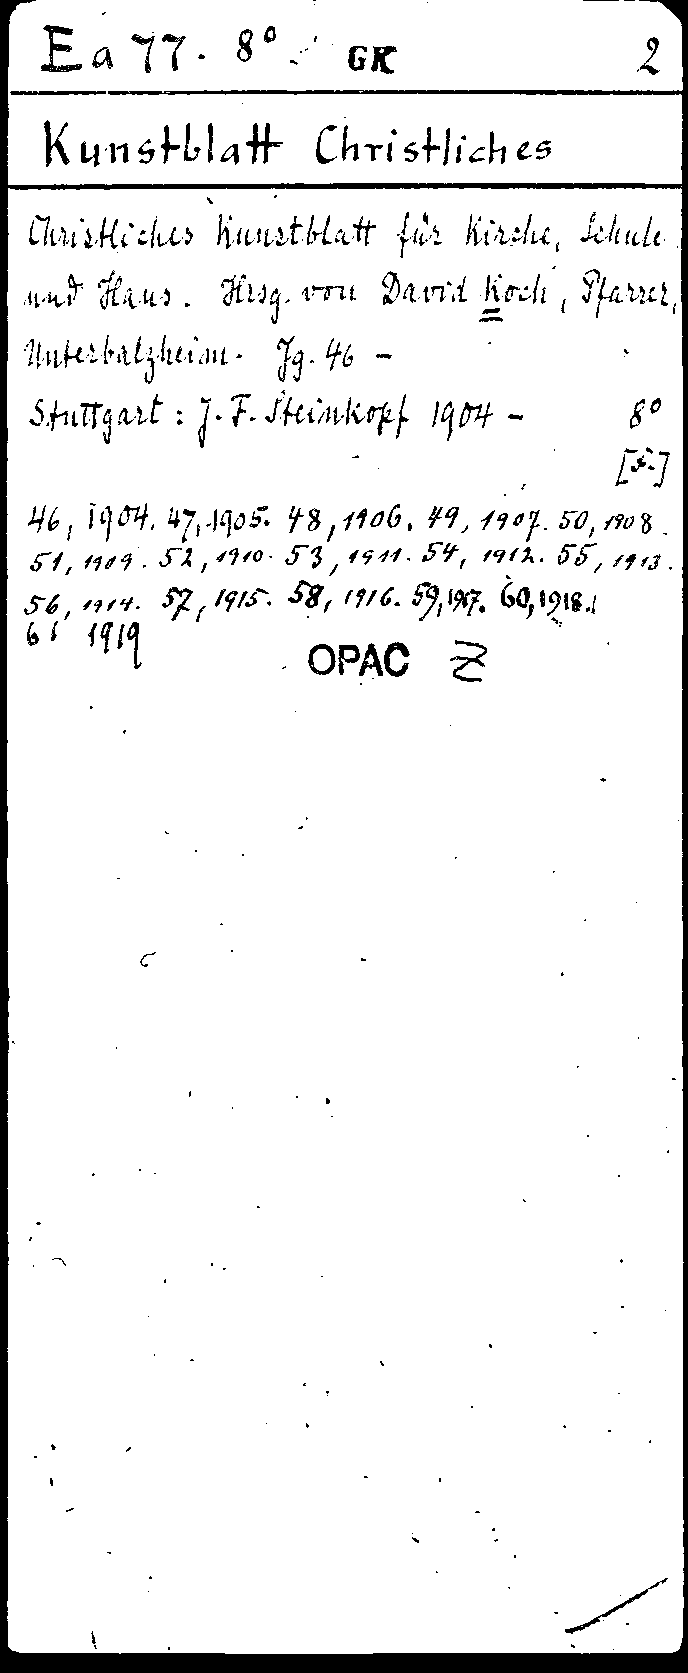 Ea 77. 8° GK 2
Kunstblatt Christliches
Christliches Kunstblatt für Kirche, Schule
und Haus. Hrsg. von David Koch, Pfarrer,
Unterbalzheim. Jg. 46 –
Stuttgart: J. F. Steinkopf 1904 – 8°
46, 1904. 47, 1905. 48, 1906. 49, 1907. 50, 1908.
51, 1909. 52, 1910. 53, 1911. 54, 1912. 55, 1913.
56, 1914. 57, 1915. 58, 1916. 59, 1917. 60, 1918.
61 1919
OPAC Z